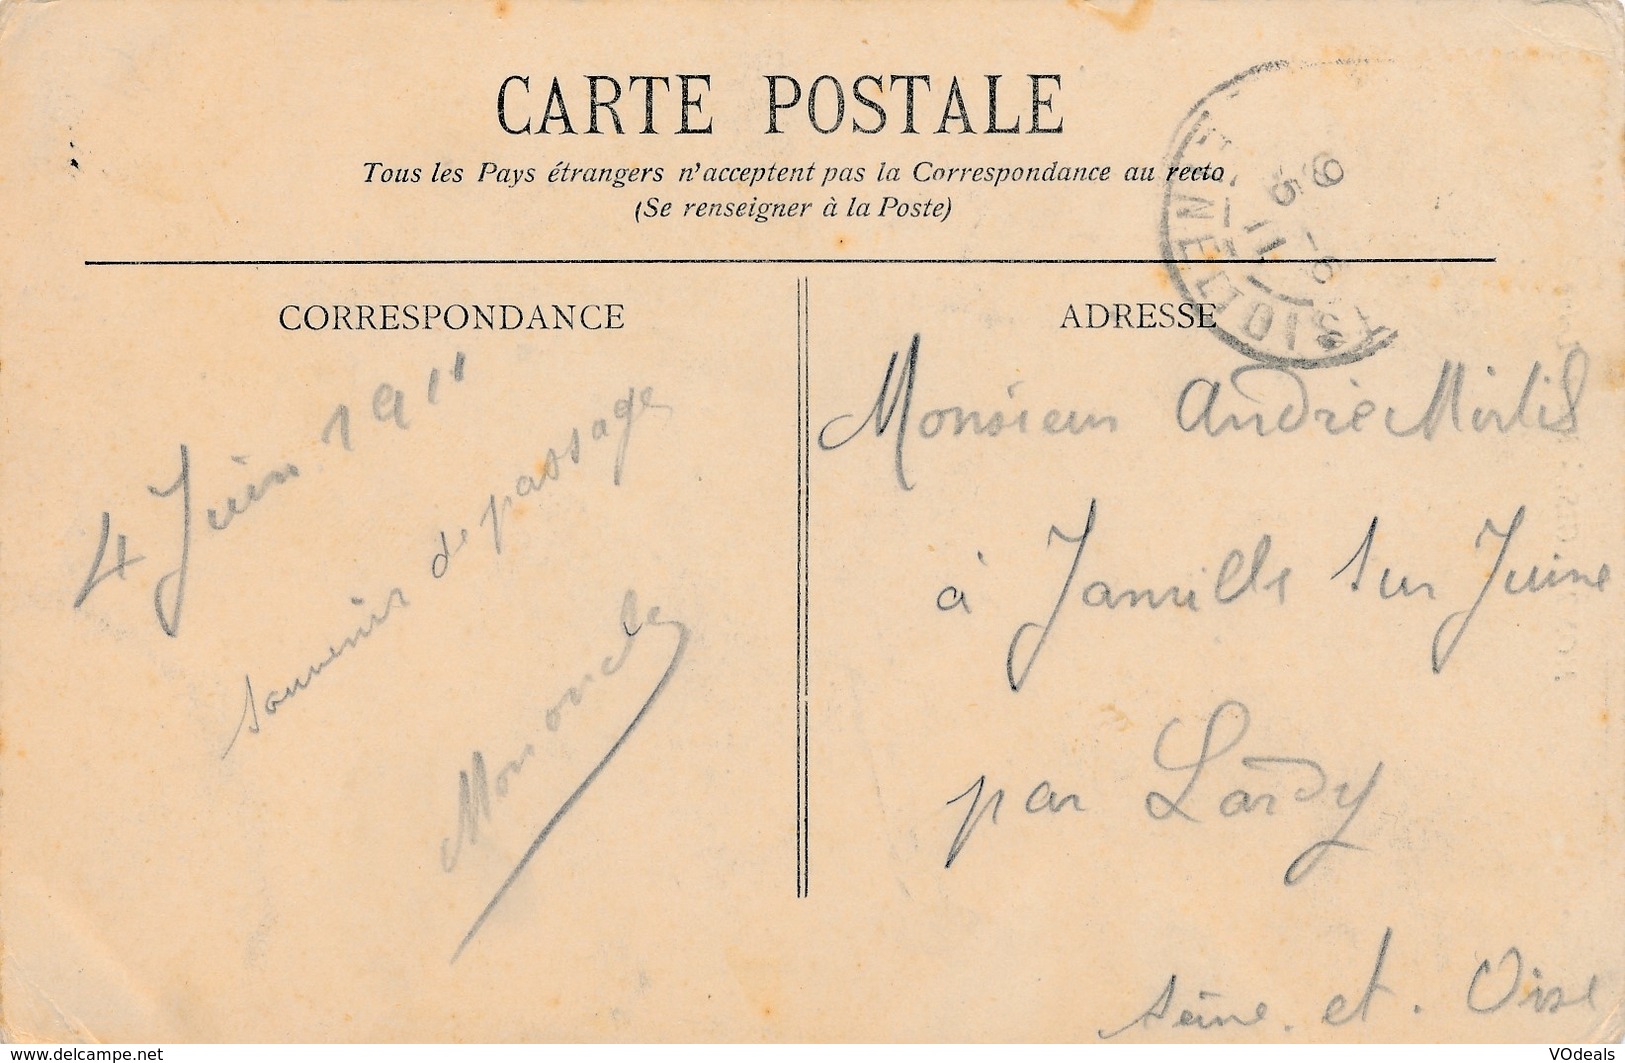 CARTE POSTALE
Tous les Pays étrangers n'acceptent pas la Correspondance au recto
(Se renseigner à la Poste)
CORRESPONDANCE
4 Juin 1911
souvenir de passage
Mon oncle
ADRESSE
Monsieur André
à Janville sur Juine
par Lardy
Seine. et. Oise
ET OIS
www.delcampe.net
VOdeals